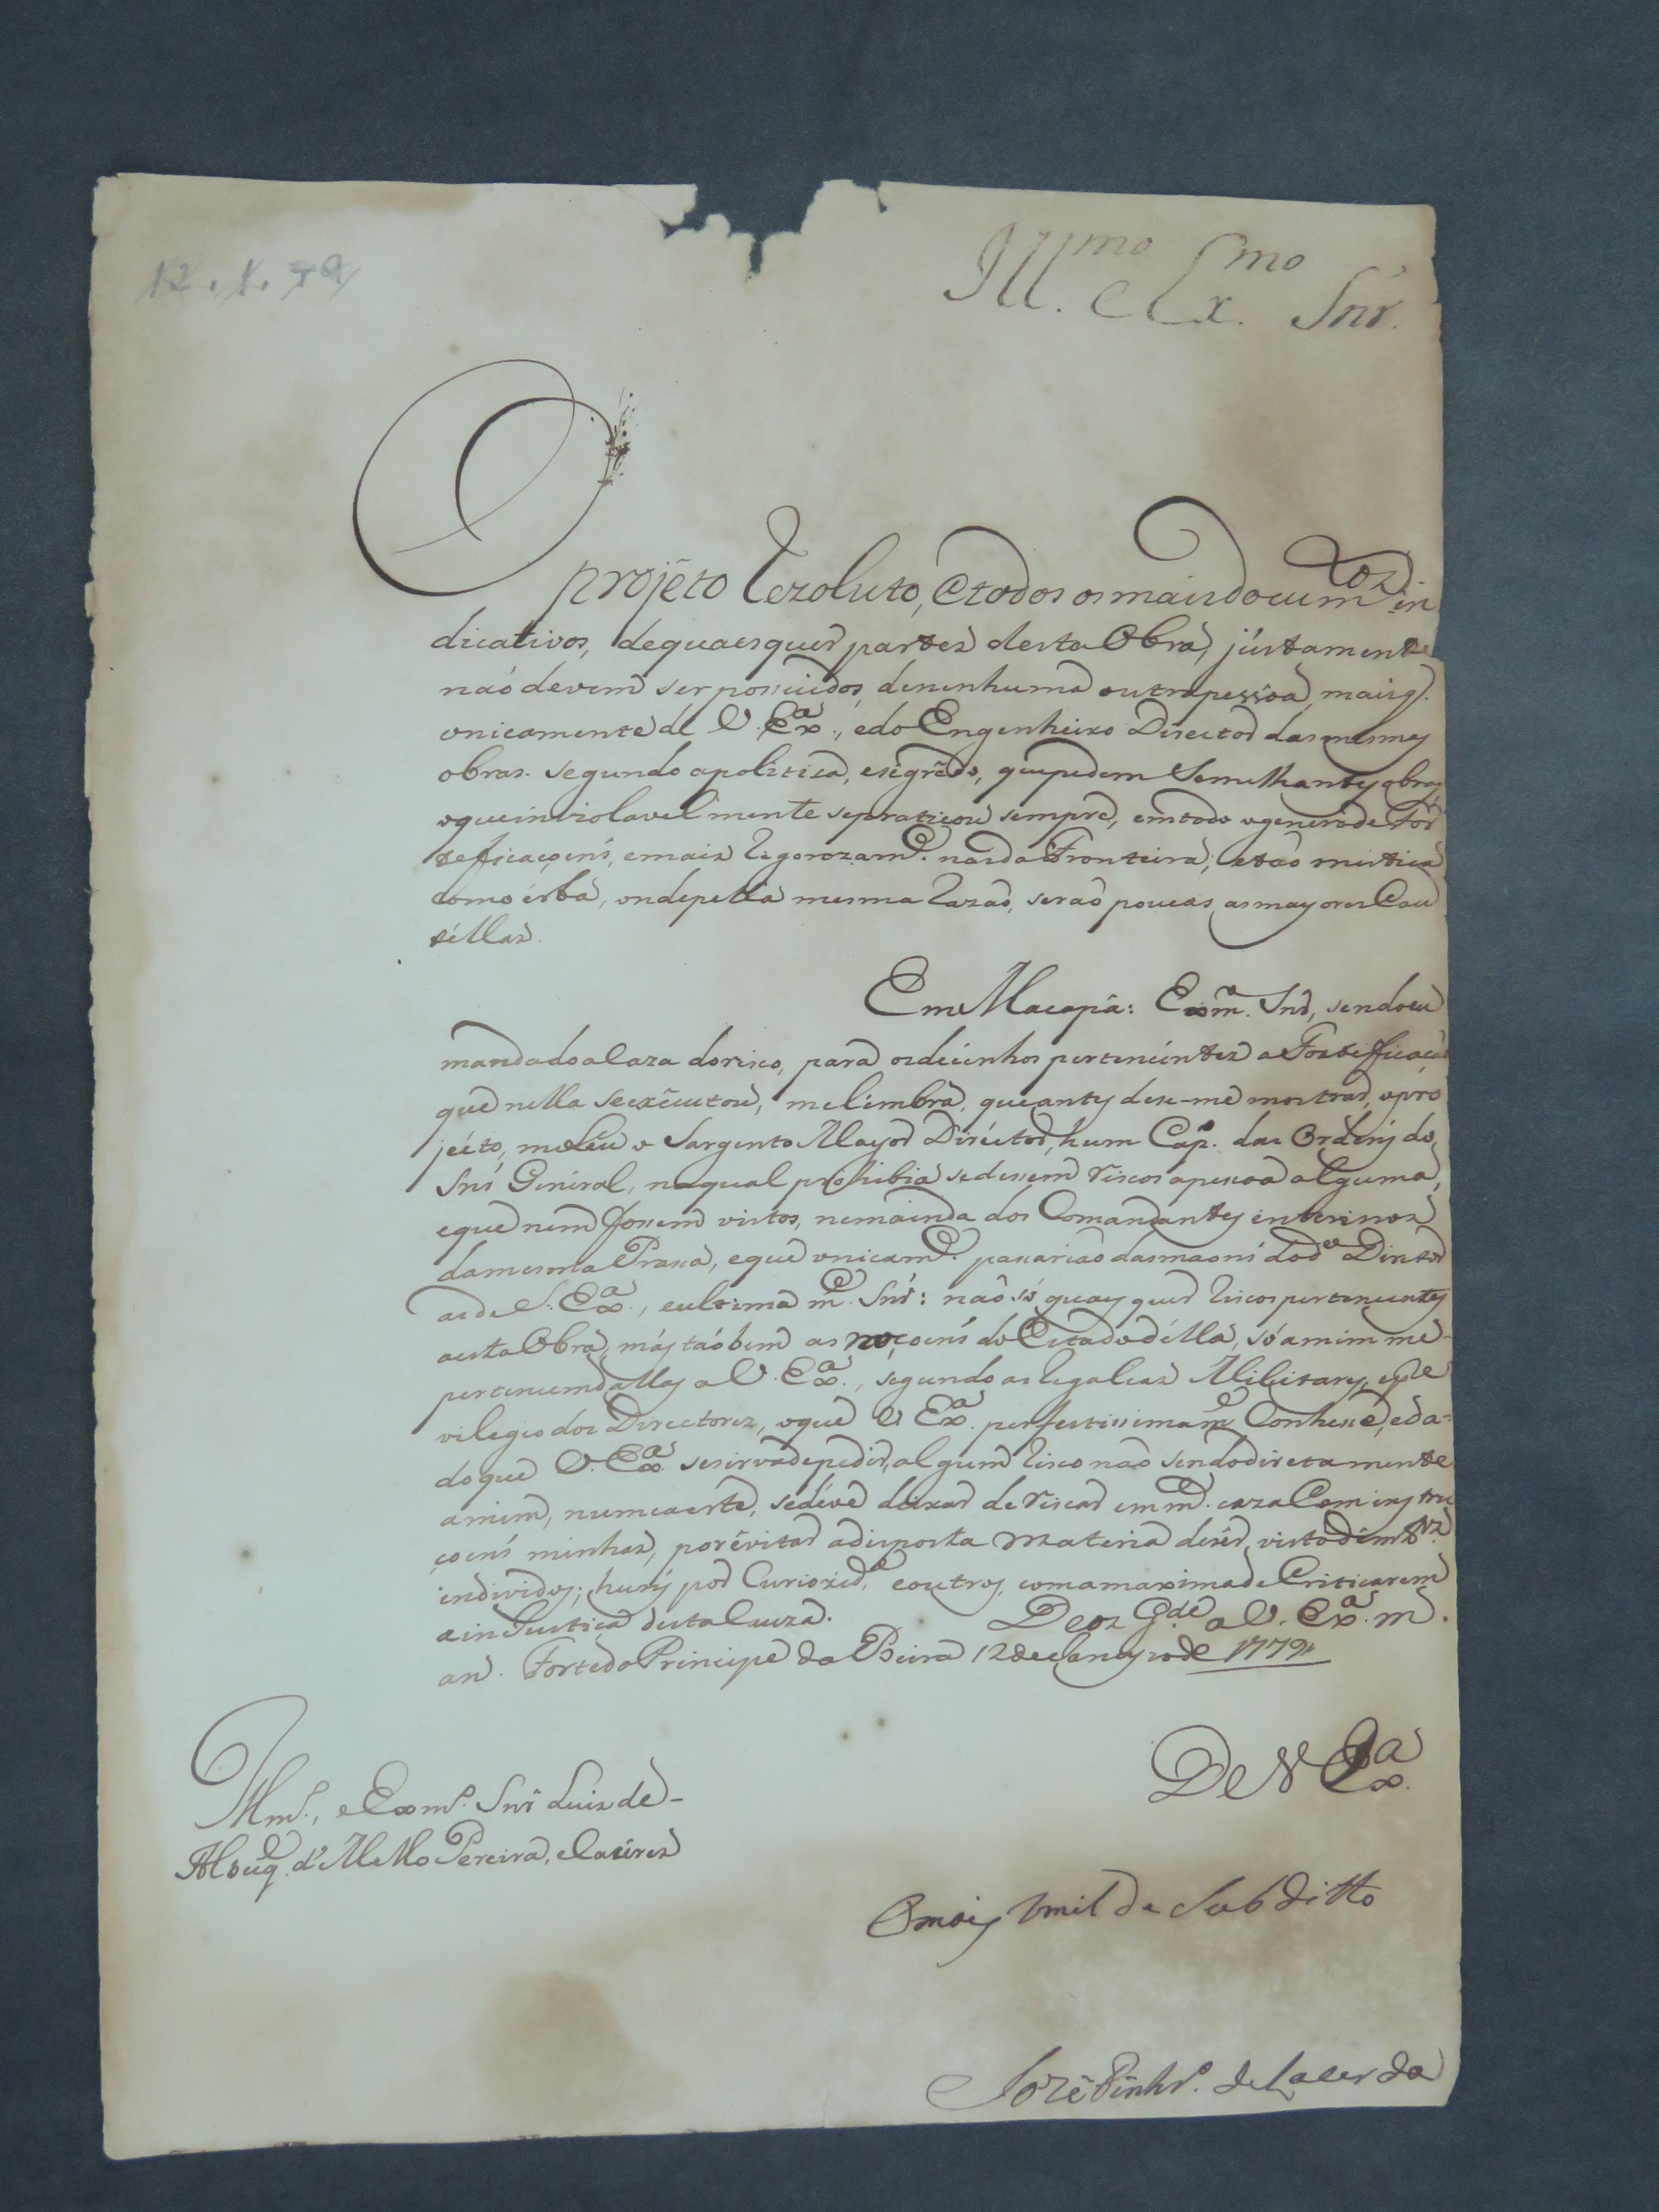 12.1.79
Ill.mo e Ex.mo Snr.
O projéto Rezoluto, e todos os mais docum.tos in
dicativos, de quaesquer partes desta Obra, jústamente
naó devem ser possuidos, de nenhuma outra pessoa, mais q.
unicamente de V. Ex.a, e do Engenheiro Director das mesmas
obras. segundo a politica, eségrêdo, que pedem Semelhantes obras,
o que inviolavelmente se praticou sempre, em todo o genero de For
teficaçoens, e mais Rigorozam.e nas da Fronteira; e taó mistica
como esta, onde pella mesma Razaó, seraó poucas as mayores Cau
téllas.
Em Macapá: Exm.o Snr, sendo eu
mandado a Caza do risco, para os decinhos pertencentes a Forteficaçaó
que nella se exécutou, me lembra, que antes de se-me mostrar, o pro
jécto, me Leu o Sargento Mayor Diréctor, hum Cap.o das Ordens do
Snr General, no qual prohibia se dessem riscos a pessoa alguma,
e que nem fossem vistos, nem ainda dos Comandantes interinos
da mesma Prassa, e que unicam.e passariaó das maons do d.o Director
as de S. Ex.a, e ultima m.e Snr: naó só quaes quer Riscos pertencentes
a esta Obra, más taóbem as noçoens do Estado délla, só a mim me-
pertence mdallas a V. Ex.a, segundo as Regalias Militares, e pre
vilegio dos Directores, o que V. Ex.a perfeitissimam.e Conhesse, e da-
do que V. Ex.a se sirva de pedir, algum Risco naó sendo diretamente
a mim, num ca este, se déve deixar de riscar em m.a caza Com ins tru
çoens minhas, por évitar a disposta materia de sér visto de m.tos
individos; huns por Curiozid.e, e outros, com a maxima de Criticarem
a in Justiça desta Cauza. Deos G.de a V. Ex.a m.
an. Forte do Principe da Beira 12 de Janeyro de 1779
De V Ex.a
Illm.o, e Exm.o Snr Luiz de-
Albuq.e d'Mello Pereira, e Caceres
O mais Umil de Sub ditto
Jozé Pinhr.o de Lacerda